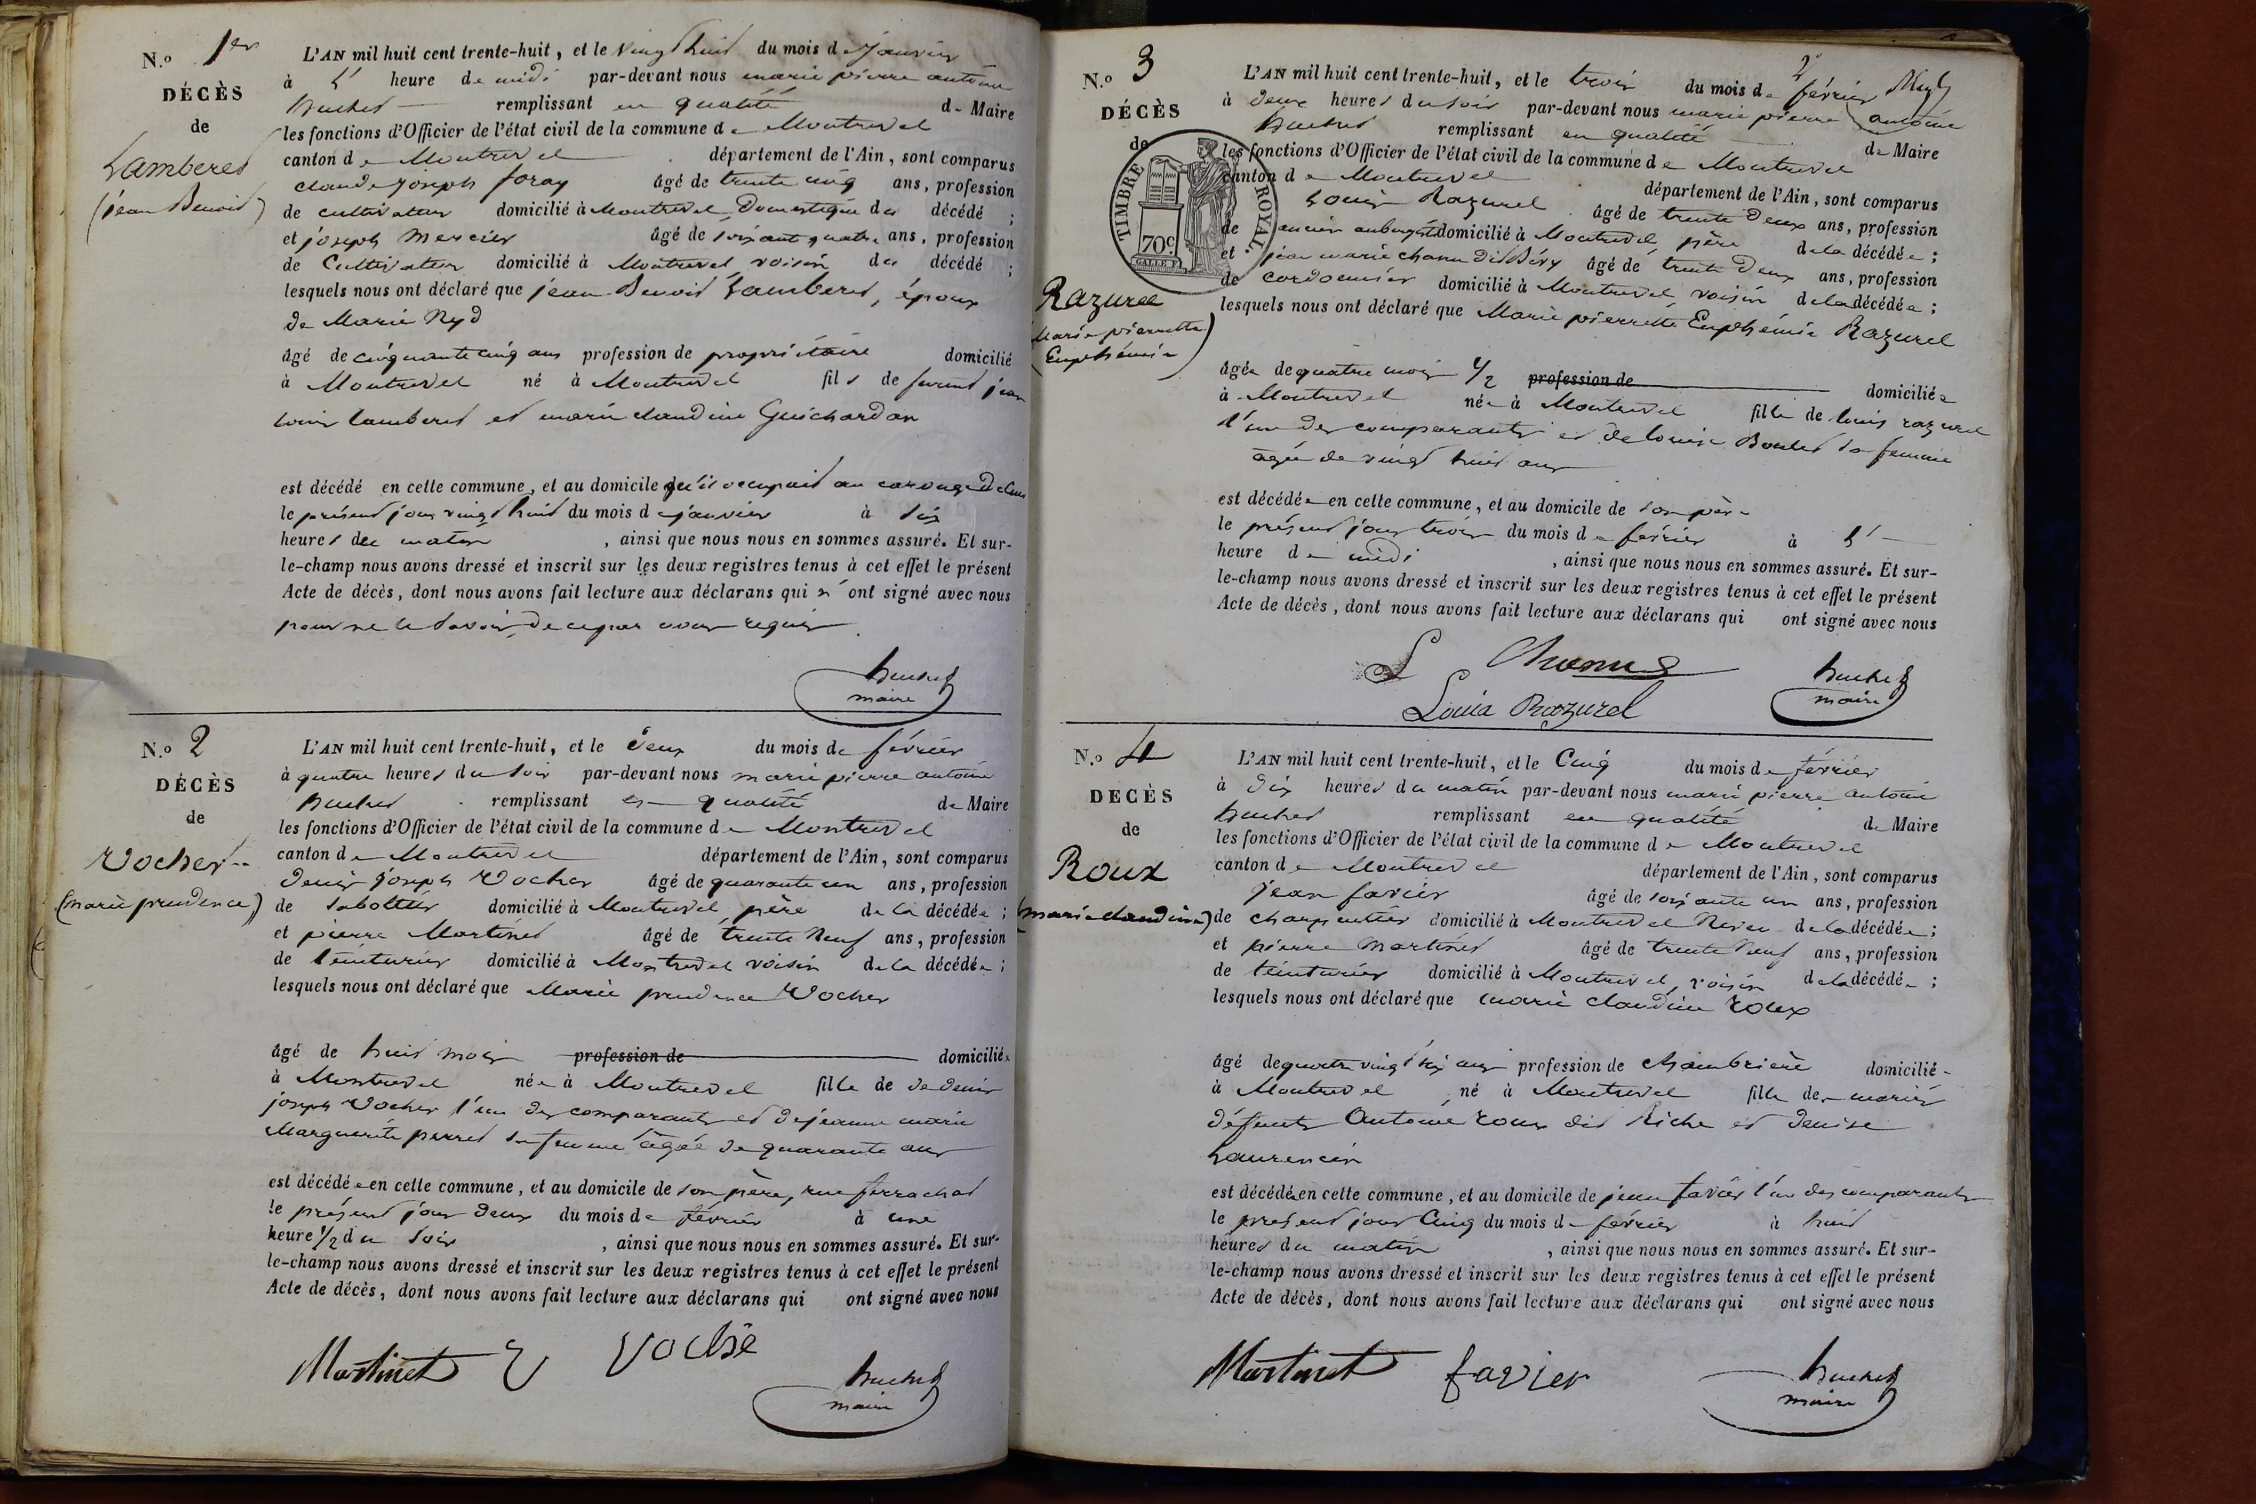 N.o 1er
DÉCÈS
de
Lamberet
(jean Benoit)
L'AN mil huit cent trente-huit, et le vingt huit du mois de janvier
à heure de midi par-devant nous marie pierre antoine
huchet remplissant en qualité de Maire
les fonctions d'Officier de l'état civil de la commune de Montrevel
canton de Montrevel département de l'Ain, sont comparus
claude joseph foray âgé de trente cinq ans, profession
de cultivateur domicilié à Montrevel, Domestique du décédé ;
et joseph Mercier âgé de soixante quatre ans, profession
de Cultivateur domicilié à Montrevel, voisin du décédé ;
lesquels nous ont déclaré que jean Benoit Lamberet, époux
de Marie Nyd
âgé de cinquante cinq ans profession de propriétaire domicilié
à Montrevel né à Montrevel fils de furent jean
louis lamberet et marie claudine Guichardan
est décédé en cette commune, et au domicile qu'il occupait au
le présent jour vingt huit du mois de janvier à six
heures du matin , ainsi que nous nous en sommes assuré. Et sur-
le-champ nous avons dressé et inscrit sur les deux registres tenus à cet effet le présent
Acte de décès, dont nous avons fait lecture aux déclarans qui n'ont signé avec nous
pour ne le savoir, de ce par nous requis
huchet
maire
N.o 2
DÉCÈS
de
Vocher
(marie prudence)
L'AN mil huit cent trente-huit, et le deux du mois de février
à quatre heures du soir par-devant nous marie pierre antoine
huchet remplissant en qualité de Maire
les fonctions d'Officier de l'état civil de la commune de Montrevel
canton de Montrevel département de l'Ain, sont comparus
denis joseph Vocher âgé de quarante un ans, profession
de sabottier domicilié à Montrevel, père de la décédée ;
et pierre Martinet âgé de trente Neuf ans, profession
de teinturier domicilié à Montrevel voisin de la décédée ;
lesquels nous ont déclaré que Marie prudence Vocher
âgé de huit mois profession de domiciliée
à Montrevel née à Montrevel fille de de denis
joseph Vocher l'un des comparants et de jeanne marie
Marguerite perret sa femme âgée de quarante ans
est décédée en cette commune, et au domicile de son père, rue ferrachat
le présent jour deux du mois de février à une
heure 1/2 du soir , ainsi que nous nous en sommes assuré. Et sur-
le-champ nous avons dressé et inscrit sur les deux registres tenus à cet effet le présent
Acte de décès, dont nous avons fait lecture aux déclarans qui ont signé avec nous
Martinet
huchet
maire
N.o 3
DÉCÈS
de
TIMBRE ROYAL.
70c
Razurel
(Marie pierrette
Euphémie)
L'AN mil huit cent trente-huit, et le trois du mois de février
à deux heures du soir par-devant nous marie pierre antoine
huchet remplissant en qualité de Maire
les fonctions d'Officier de l'état civil de la commune de Montrevel
canton de Montrevel département de l'Ain, sont comparus
Louis Razurel âgé de trente deux ans, profession
de ancien aubergiste domicilié à Montrevel, père de la décédée ;
et jean marie chanu âgé de trente deux ans, profession
de cordonnier domicilié à Montrevel, voisin de la décédée ;
lesquels nous ont déclaré que Marie pierrette Euphémie Razurel
âgée de quatre mois 1/2 profession de domiciliée
à Montrevel née à Montrevel fille de louis razurel
l'un des comparants et de louise Boulet sa femme
âgée de vingt huit ans
est décédée en cette commune, et au domicile de son père
le présent jour trois du mois de février à
heure de midi , ainsi que nous nous en sommes assuré. Et sur-
le-champ nous avons dressé et inscrit sur les deux registres tenus à cet effet le présent
Acte de décès, dont nous avons fait lecture aux déclarans qui ont signé avec nous
Louis Razurel
huchet
maire
N.o 4
DECÈS
de
Roux
(marie claudine)
L'AN mil huit cent trente-huit, et le Cinq du mois de février
à dix heures du matin par-devant nous marie pierre antoine
huchet remplissant en qualité de Maire
les fonctions d'Officier de l'état civil de la commune de Montrevel
canton de Montrevel département de l'Ain, sont comparus
jean favier âgé de soixante un ans, profession
de charpentier domicilié à Montrevel Neveu de la décédée ;
et pierre Martinet âgé de trente Neuf ans, profession
de teinturier domicilié à Montrevel, voisin de la décédée ;
lesquels nous ont déclaré que marie claudine roux
âgé de quatre vingt six ans profession de chambrière domicilié
à Montrevel né à Montrevel fille des mariés
défunts Antoine roux dit Riche et denise
Laurencin
est décédée en cette commune, et au domicile de jean favier l'un des comparants
le présent jour Cinq du mois de février à huit
heures du matin , ainsi que nous nous en sommes assuré. Et sur-
le-champ nous avons dressé et inscrit sur les deux registres tenus à cet effet le présent
Acte de décès, dont nous avons fait lecture aux déclarans qui ont signé avec nous
Martinet favier
huchet
maire